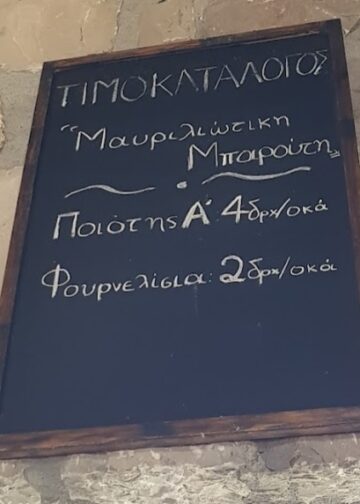 ΤΙΜΟΚΑΤΑΛΟΓΟΣ
"Μαυριλιώτικη
Μπαρούτη"
Ποιότης Α' 4δρχ/οκά
Φουρνελίσια: 2δρχ/οκά